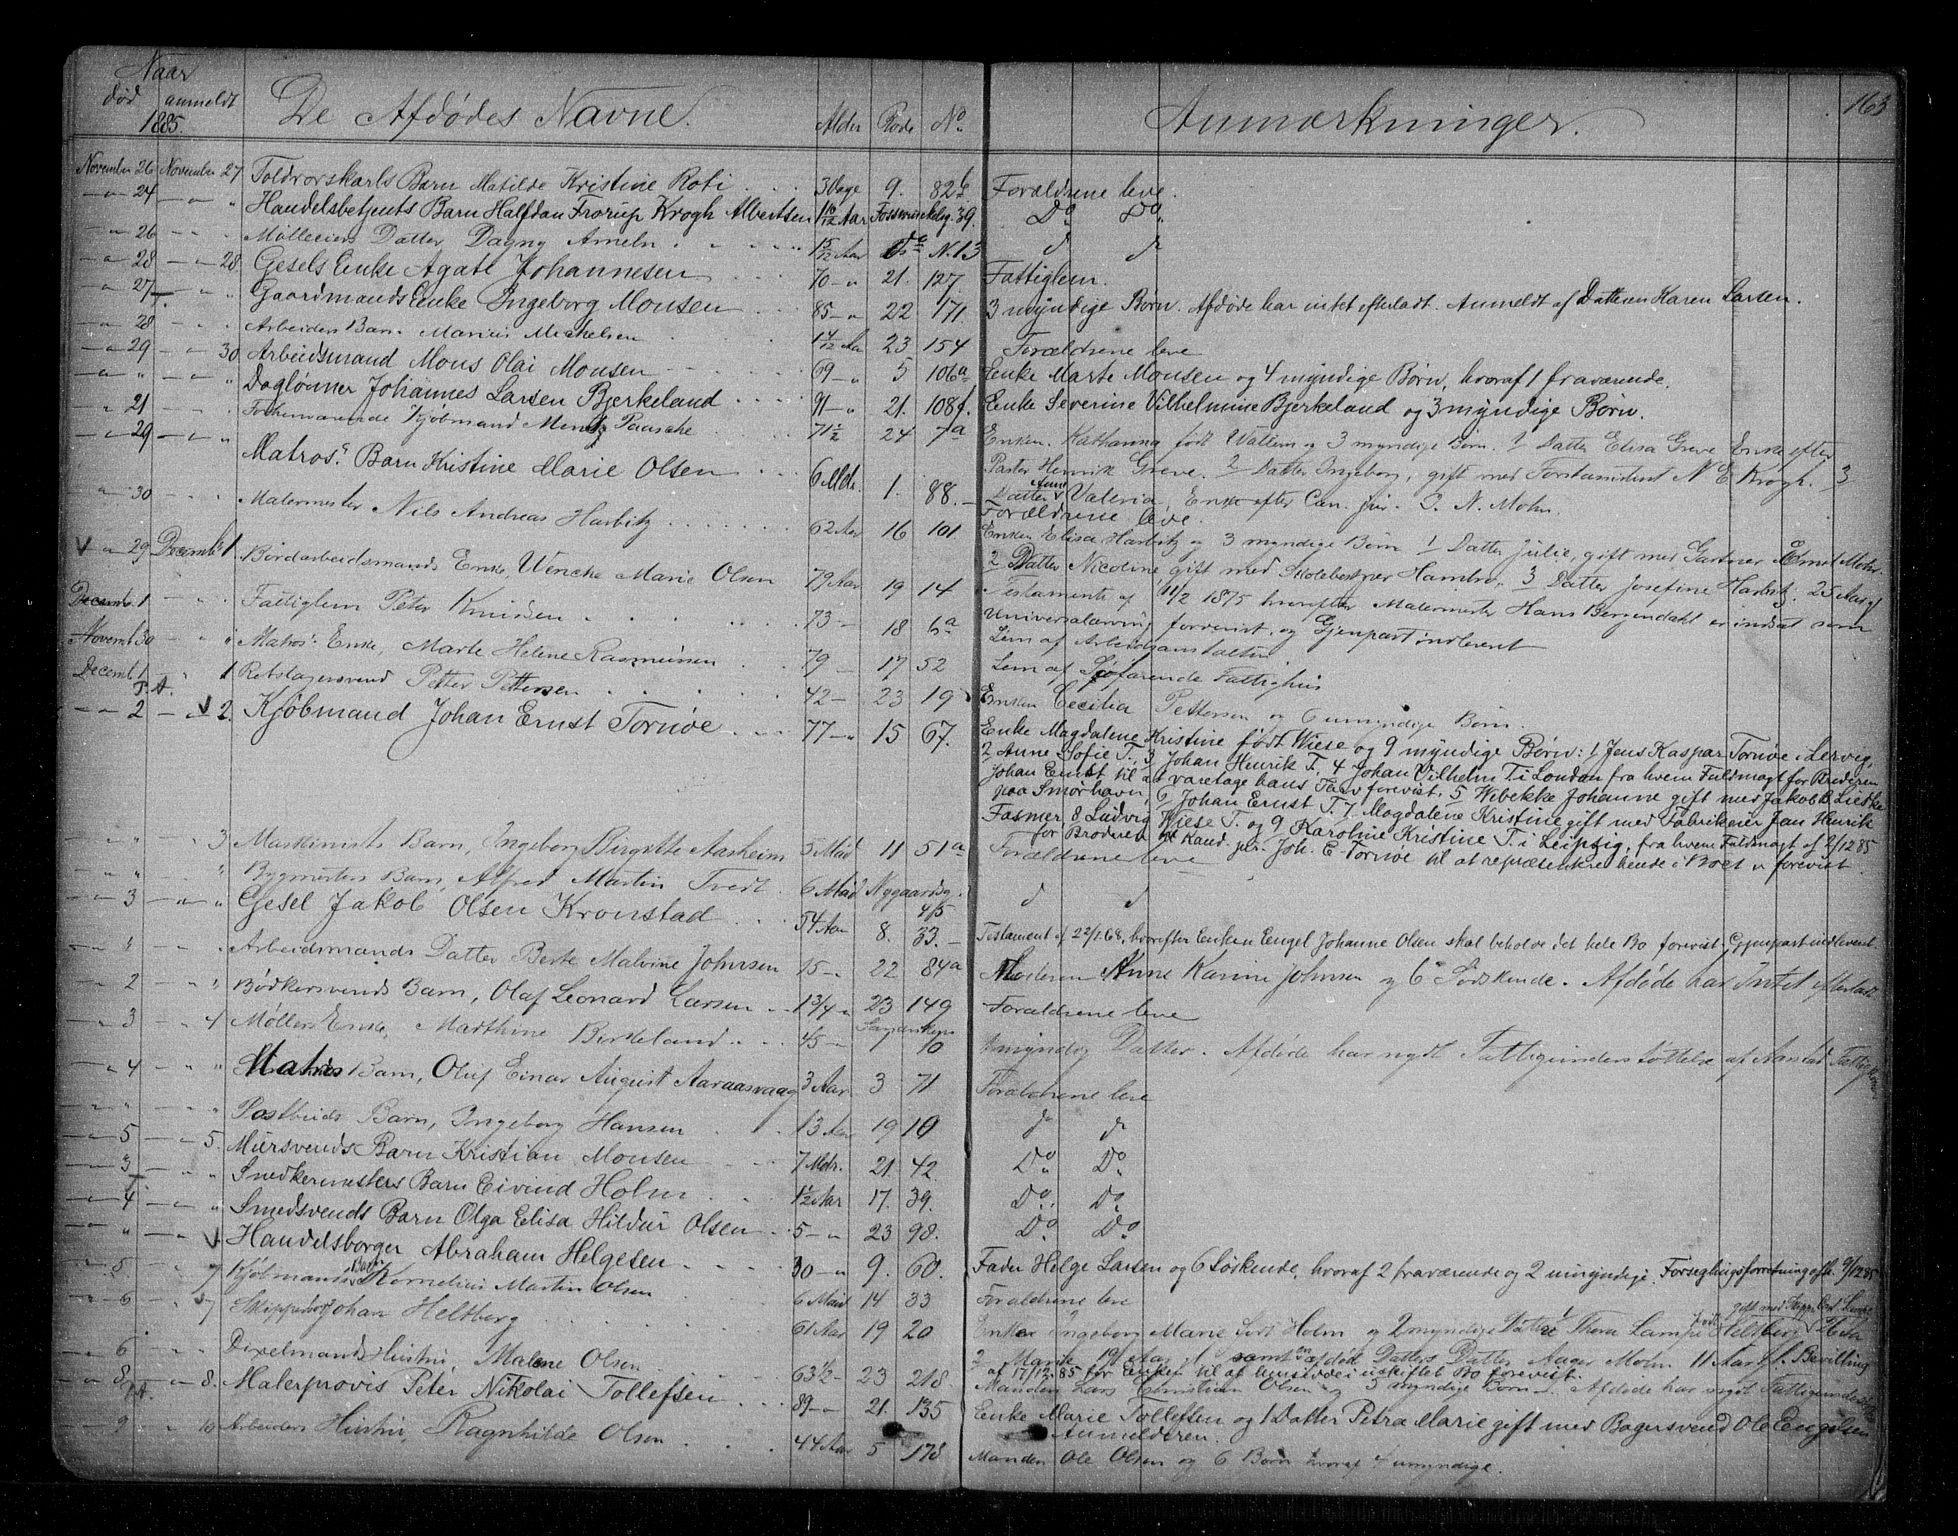 163
Naar
død anmeldt De Afdødes Navne. Alder Rode No. Anmærkninger.
1885.
November 26 November 27 Toldrorskarls Barn Matilde Kristine Roti 3 Dage 9. 82b Forældrene leve.
" 24 " " Handelsbetjents Barn Halfdan Frorup Krogh Albertsen 1 10/12 Aar 39. Do Do
" 26 " " Datter, Dagny Ameln 1 5/12 Aar Do N. 13 d d
" 28 " 28 Gesels Enke Agate Johannesen 70 " 21. 127 Fattiglem.
" 27 " " Gaardmands Enke Ingeborg Monsen 85 " 22 171. 3 myndige Børn. Afdøde har intet efterladt. Anmeldt af Datteren Karen Larsen.
" 28 " " Arbeiders Barn Marius Michelsen 1 4/12 Aar 23 154 Forældrene leve
" 29 " 30 Arbeidsmand Mons Olai Monsen 69 " 5 106a Enke Marte Monsen og 4 myndige Børn, hvoraf 1 fraværende.
" " " " Daglønner Johannes Larsen Bjerkeland 91 " 21. 108f. Enke Severine Vilhelmine Bjerkeland og 3 myndige Børn.
" 21 " " Forhenværende Kjøbmand Mentz Paasche 71 1/2 24 7a Enken Katharina født Wallem og 3 myndige Børn. 1 Datter Elisa Greve Enke efter
" 29 " " Matros. Barn Kristine Marie Olsen 6 Mdr. 1. 88. Pastor Henrik Greve. 2 Datter Ingeborg, gift med Forstassistent N E Krogh. 3
Datter Anne Valeria, Enke efter Can. jur. O. N. Mohn.
Forældrene leve.
" 30 " " Malermester Nils Andreas Harbitz 62 Aar 16 101 Enken Elisa Harbitz og 3 myndige Børn 1 Datter Julie, gift med Gartner Ernst Mohr.
2 Datter Nicoline gift med Skolebestyrer Hambro, 3 Datter Josefine Harbitz. 25 Aar
" 29 Decemb 1 Enke, Wencke Marie Olsen 79 Aar 19 14 Testamente af 11/2 1875 hvorefter Malermester Hans Bergendahl er indsat som
Universalarving forevist, og Gjenpart indleveret
Decemb 1 " " Fattiglem Peter Knudsen 73 18 6a Lem af Arbeidsanstalten
Novemb 30 " " Matros. Enke, Marte Helene Rasmussen 79 17 52 Lem af Søfarende Fattighus
Decemb 1 " 1 Rebslagersvend Petter Pettersen 42 23 19 Enken Cecilia Pettersen og 6 umyndige Børn.
" 2 " 2. Kjøbmand Johan Ernst Tornøe 77 " 15 67. Enke Magdalene Kristine født Wiese og 9 myndige Børn: 1 Jens Kaspar Tornøe i Lervig,
2 Anne Sofie T., 3 Johan Henrik T. 4 Johan Vilhelm T. i London fra hvem Fuldmagt for Broderen
Johan Ernst til at varetage hans Tarv forevist, 5 Wibekke Johanne gift med Jakob B. Liedtke
paa Smørhavn, 6 Johan Ernst T. 7 Magdalene Kristine gift med Fabrikeier Jan Henrik
Fasmer 8 Ludvig Wiese T. og 9 Karoline Kristine T. i Leipzig, fra hvem Fuldmagt af 2/12 85
for Broderen Kand. jur. Joh. E. Tornøe til at repræsentere hende i Boet er forevist.
" " " 3 Maskinists Barn, Ingeborg Birgitte Aasheim 5 Mdr 11 51a Forældrene leve
" " " " Bygmesters Barn, Alfred Martin Tvedt. 6 Mdr Nygaardsg. 4/5 d d
" 3 " " Gesel Jakob Olsen Kronstad 54 Aar 8. 33. Testament af 22/1 68, hvorefter Enken Engel Johanne Olsen skal beholde det hele Bo forevist, Gjenpart indleveret
" " " " Arbeidsmands Datter Berte Malvine Johnsen 15 22 84a Moderen Anne Karine Johnsen og 6 Sødskende. Afdøde har Intet efterladt
" 2 " " Bødkersvends Barn, Olaf Leonard Larsen 1 3/4 23 149 Forældrene leve
" 3 " 4 Møllers Enke, Marthine Birkeland 45 10 1 myndig Datter. Afdøde har nydt Fattigunderstøttelse af Aarstad
" 4 " " Matros Barn, Oluf Einar August Aaraasvaag 3 Aar 3 71 Forældrene leve
" " " " Postbuds Barn, Ingeborg Hansen 13 Aar 19 10 d d
" 5 " 5. Mursvends Barn Kristian Monsen 7 Mdr. 21. 42 Do Do
" 3 " " Snedkermesters Barn Eivind Holm 1 1/2 Aar 17. 39. Do Do
" 4 " " Smedsvends Barn Olga Elisa Hildur Olsen 5 " 23 98. Do Do
" " " Handelsborger Abraham Helgesen 30 " 9. 60. Fader Helge Larsen og 6 Sødskende, hvoraf 2 fraværende og 2 umyndige. Forseglingsforretning afh. 9/12 85
" 5 " 7 Kjøbmands Barn Kornelius Martin Olsen 6 Mdr 14 33 Forældrene leve
" 6 " 7 Johan Heltberg 61 Aar 19 20 Enke Ingeborg Marie født Holm og 2 myndige Døttre 1 Thora Lampe født Heltberg
2 Marie 19 Aar samt en afdød Datters Datter Mohn 11 Aar Bevilling
af 17/12 85 for Enken til at hensidde i uskiftet Bo forevist.
" 6 " " Dixelmands Hustru, Malene Olsen 63 1/2 23 218 Manden Lars Christian Olsen og 3 myndige Børn. Afdøde har nydt
" 8 " 8. Malerprovis Peter Nikolai Tollefsen 89 " 21. 135 Enke Marie Tollefsen og 1 Datter Petra Marie gift med Bagersvend Ole Engelsen
Anmelderen.
" 9 " 10 Arbeiders Hustru, Ragnhilde Olsen 44 Aar 5 178 Manden Ole Olsen og 6 Børn hvoraf 4 umyndige.